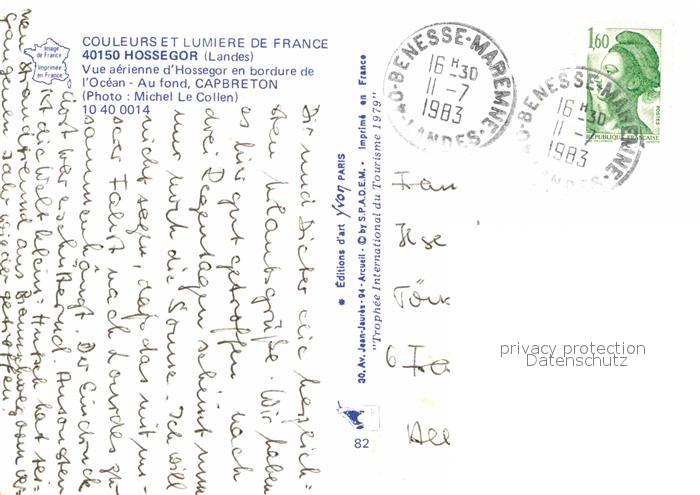 COULEURS ET LUMIERE DE FRANCE
40150 HOSSEGOR (Landes)
Vue aérienne d'Hossegor en bordure de
l'Océan - Au fond, CAPBRETON
(Photo : Michel Le Collen)
10 40 0014
Image
de France
Imprimée
en France
Dir und Dieter die herzlich=
sten Urlaubsgrüße. Wir haben
es hier gut getroffen nach
drei Regentagen scheint nun
nur noch die Sonne. Ich will
nicht sagen, daß das mit un=
serer Fahrt nach Lourdes zu=
sammenhängt. Der Eindruck
dort war erschütternd. Ansonsten
ist die Welt klein: Hutsch hat sei=
nen Strandfreund aus
ganzen Jahr wieder getroffen
* Éditions d'art yvon PARIS
30, Av. Jean-Jaurès - 94 - Arcueil - © by S.P.A.D.E.M. - Imprimé en France
"Trophée International du Tourisme 1979"
82
40-BENESSE-MAREMNE
16 H -30
11 -7
1983
LANDES
1,60
REPUBLIQUE FRANÇAISE
POSTES
40-BENESSE-MAREMNE
16 H -30
11 -7
1983
LANDES
Frau
Ilse
Törk
6 Fra
All
privacy protection
Datenschutz